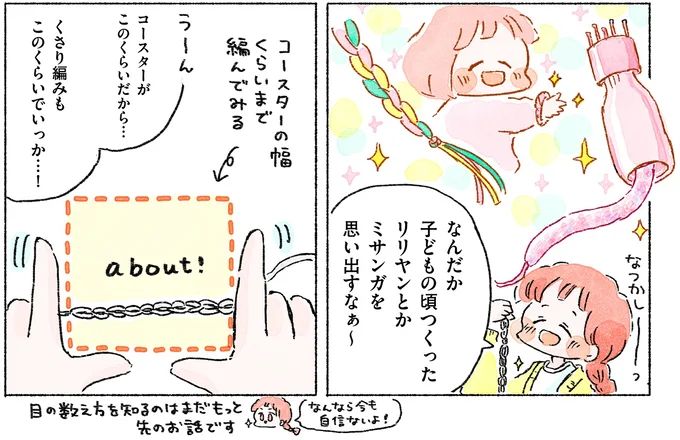 なんだか
子どもの頃つくった
リリヤンとか
ミサンガを
思い出すなぁ〜
なつかし〜っ
コースターの幅
くらいまで
編んでみる
う〜ん
コースターが
このくらいだから…
くさり編みも
このくらいでいっか…！
about!
目の数え方を知るのはまだもって
先のお話です
なんなら今も
自信ないよ！